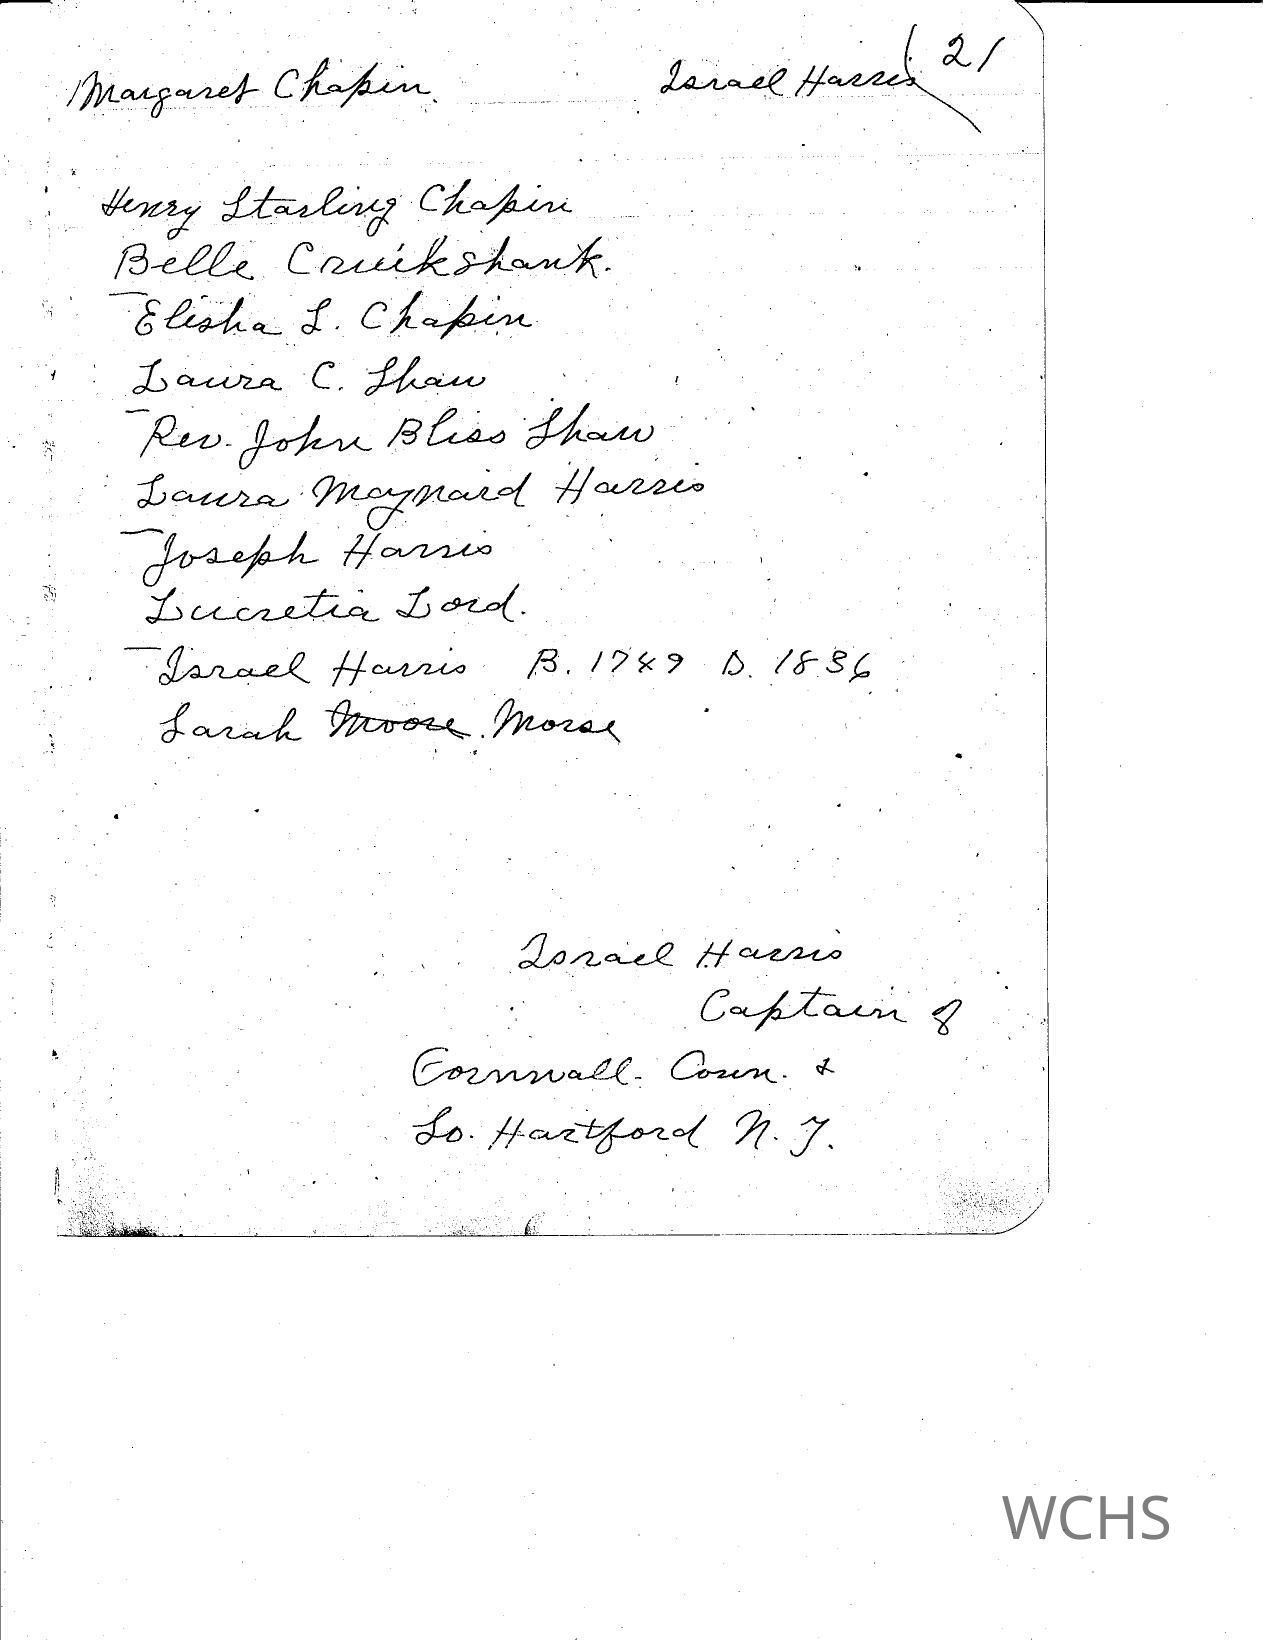 Margaret Chapin. Israel Harris 21
Henry Starling Chapin
Belle Cruikshank.
Elisha L. Chapin
Laura C. Shaw
Rev. John Bliss Shaw
Laura Maynard Harris
Joseph Harris
Lucretia Lord.
Israel Harris B. 1749 D. 1836
Sarah Moore. Morse
Israel Harris
Captain of
Cornwall. Conn. &
So. Hartford N. Y.
WCHS